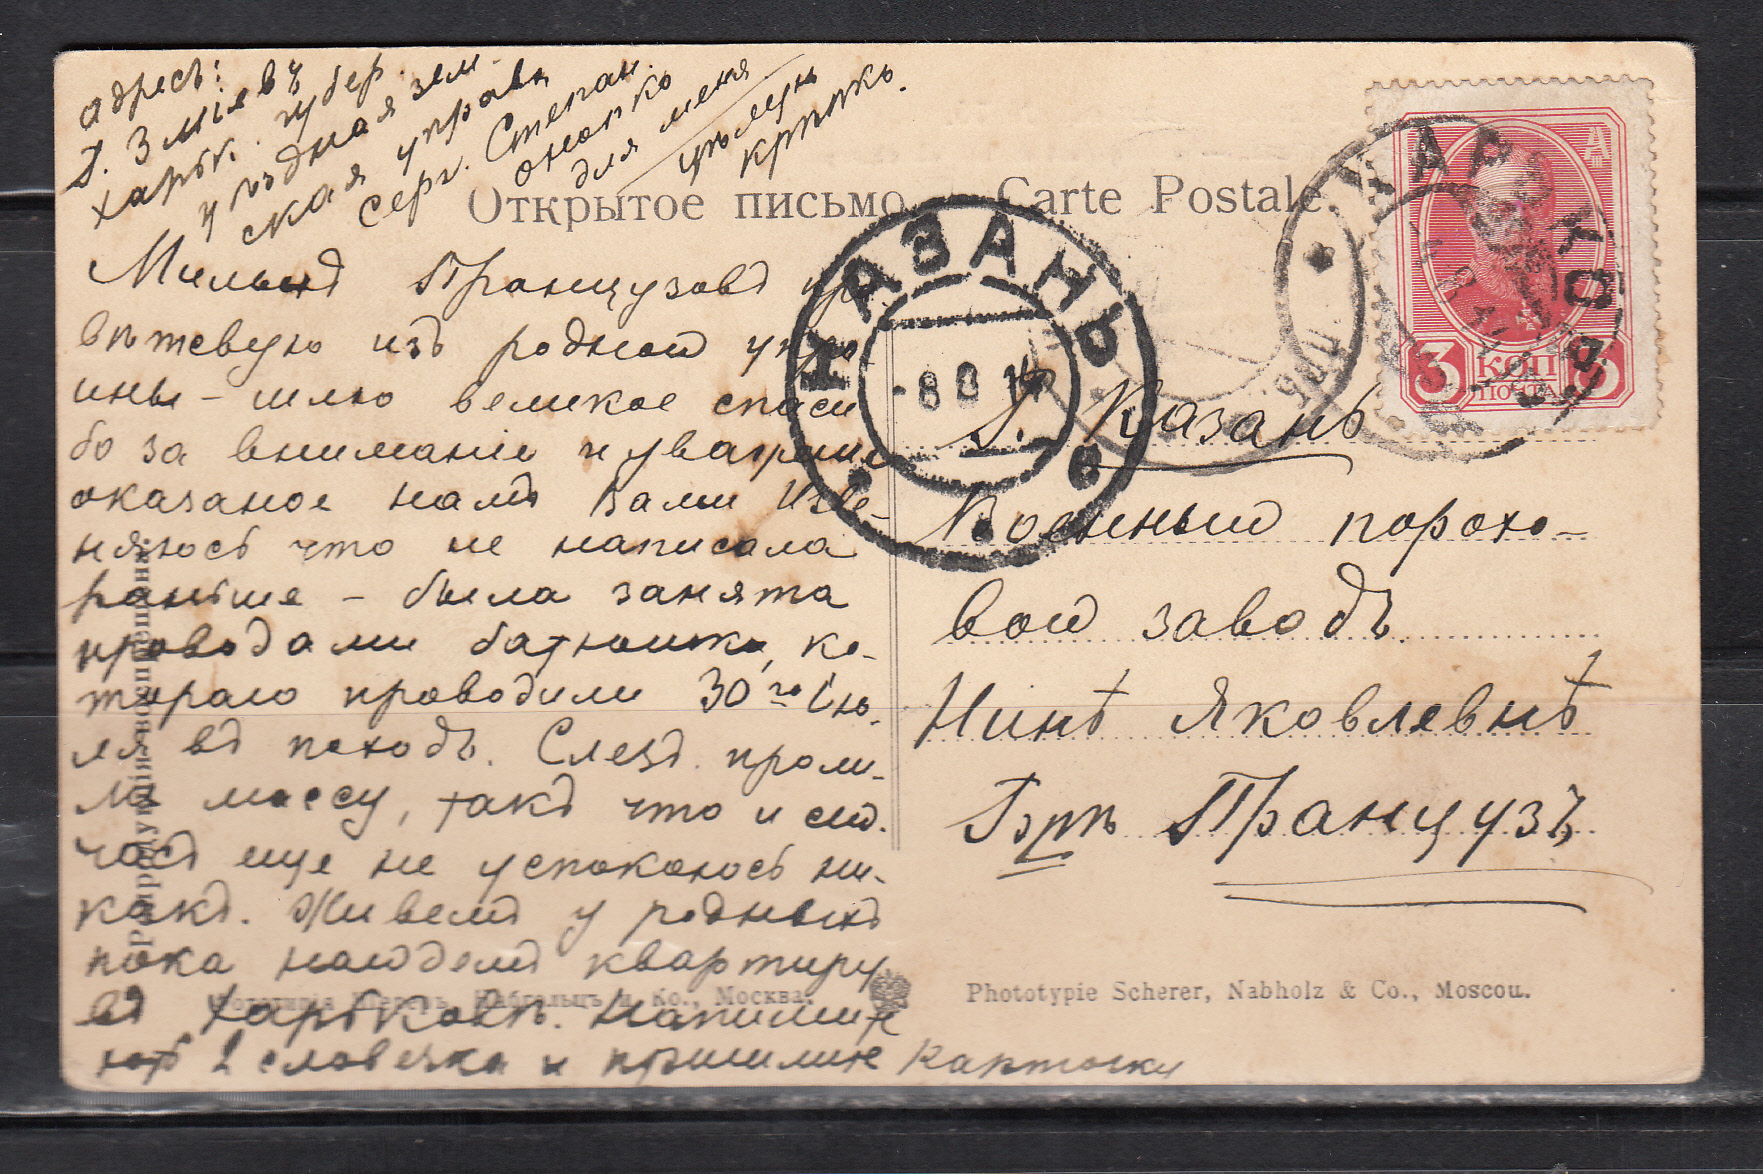 адресъ:
г. Зміевъ
Харьк. губер.
уѣздная зем-
ская управа
Серг. Степан.
Онопко
для меня
цѣлую
крѣпко.
Открытое письмо. Carte Postale.
ХАРЬКОВЪ
3 КОП 3
ПОЧТА
КАЗАНЬ
-8 8 14
Милыхъ Французовъ при
вѣтствую изъ родной укра-
ины - шлю великое спаси
бо за вниманіе и уваженіе
оказаное намъ Вами Изве-
няюсь что не написала
раньше - была занята
проводами батюшки, ко-
тораго проводили 30го Ію-
ля въ походъ. Слезъ проли-
ла массу, такъ что и сей-
часъ еще не успокоюсь ни-
какъ. Живемъ у родныхъ
пока найдемъ квартиру
въ Харьковѣ. Напишите
хоть 2 словечка и пришлите карточки
г. Казань
Военный порохо-
вой заводъ
Нинѣ Яковлевнѣ
Французъ
Фототипія Шереръ, Набгольцъ и Ко., Москва.
Phototypie Scherer, Nabholz & Co., Moscou.